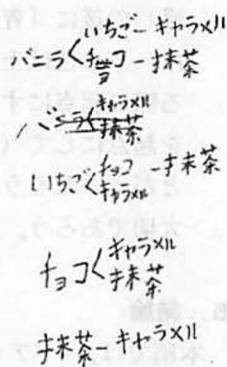 いちご-キャラメル
バニラ<チョコ-抹茶
バニラ<キャラメル
抹茶
いちご<チョコ-抹茶
キャラメル
チョコ<キャラメル
抹茶
抹茶-キャラメル